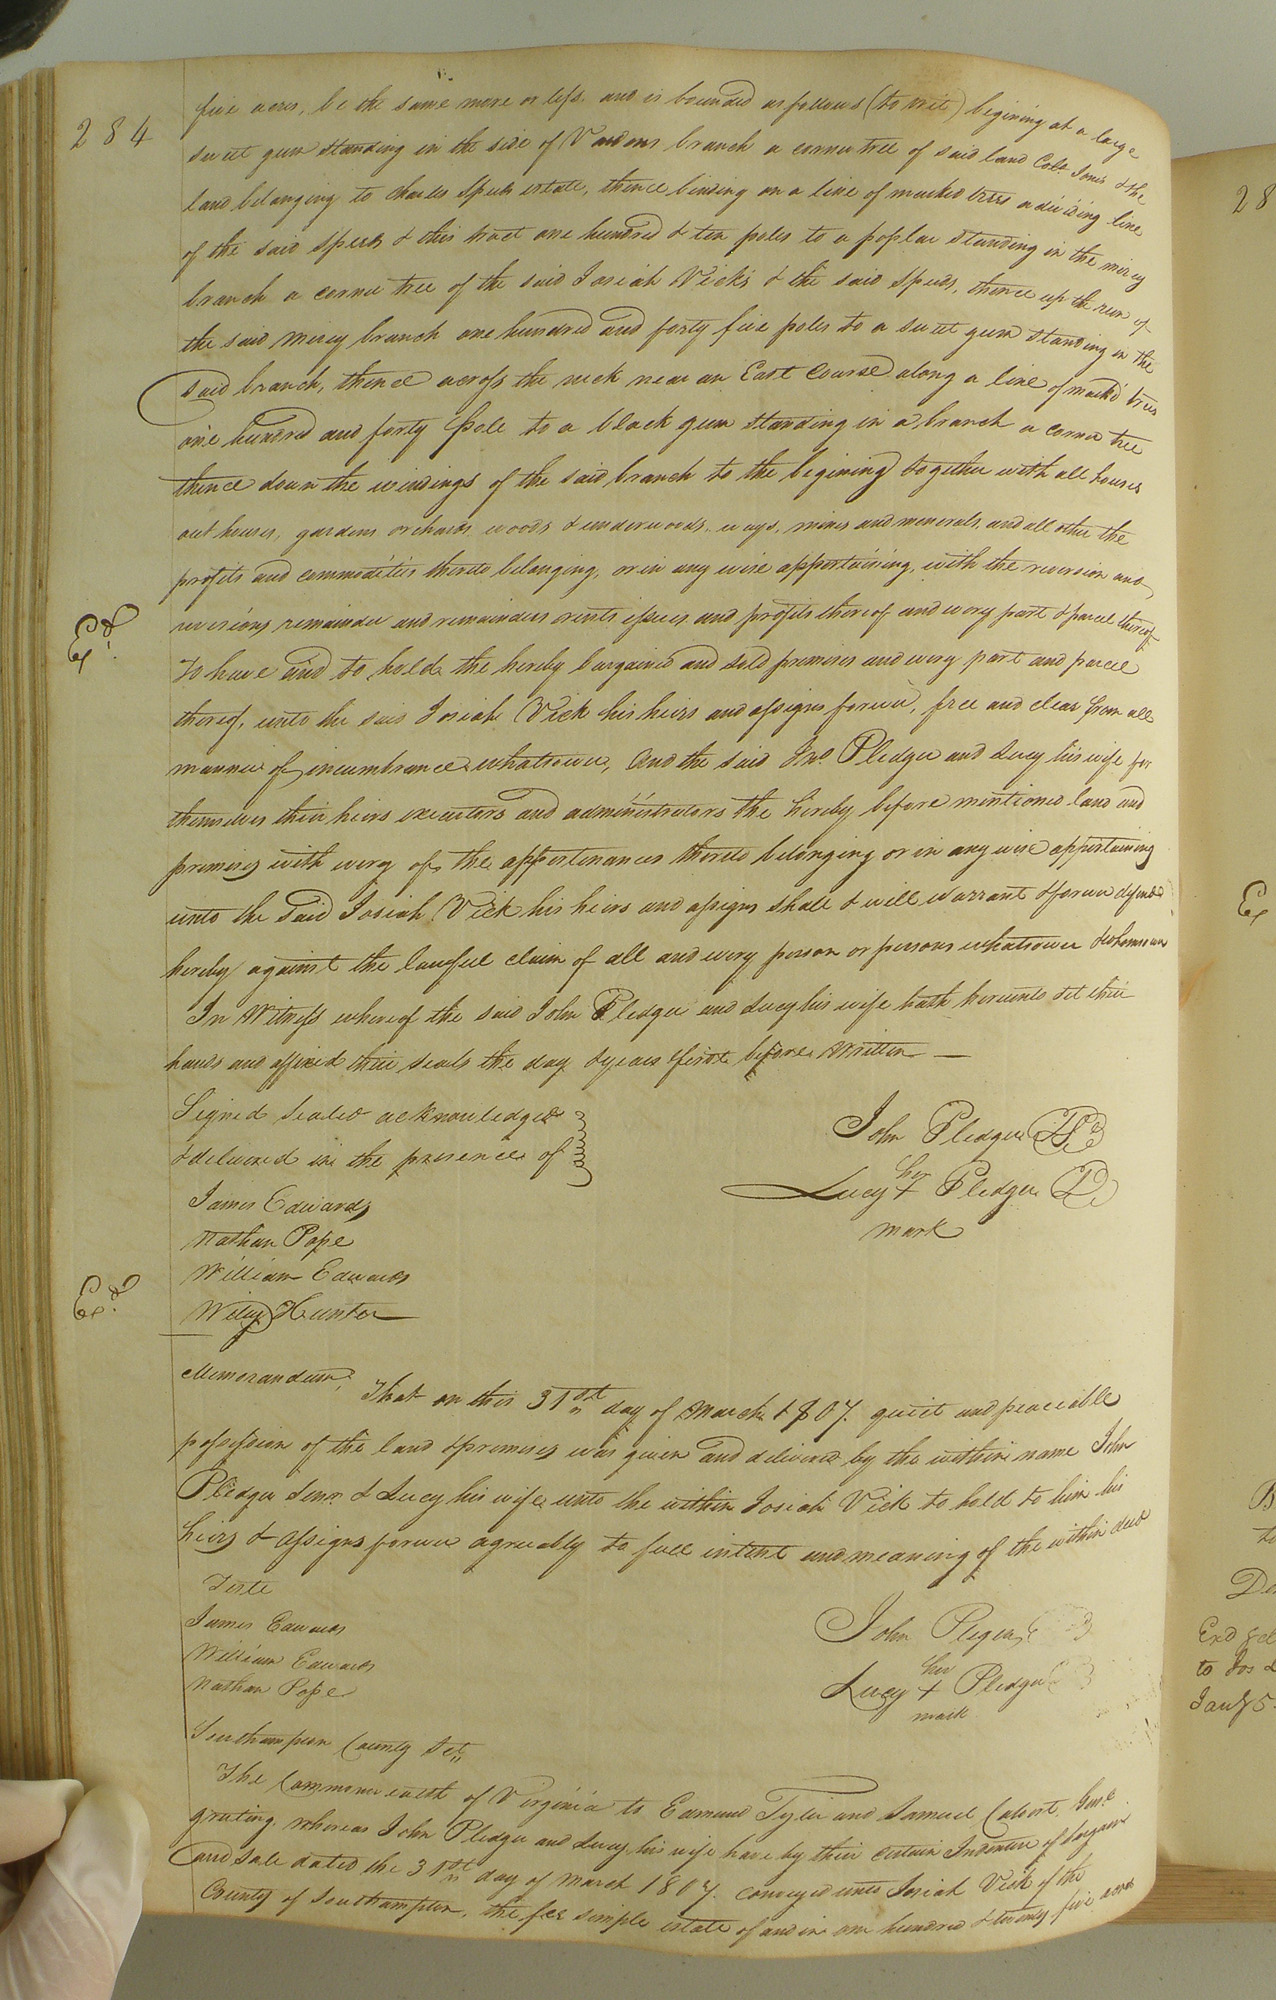 284
five acres, be the same more or less and is bounded as follows (to wit) begining at a large
sweet gum standing in the side of branch a corner tree of said land Colo. & the
land belonging to Charles Speeds estate, thence binding on a line of marked trees a dividing line
of the said Speeds & this tract one hundred & ten poles to a poplar standing in the mirey
branch a corner tree of the said Josiah Vick's & the said Speeds, thence up the run of
the said mirey branch one hundred and forty five poles to a sweet gum standing in the
said branch, thence across the neck near an East Course along a line of mark'd trees
one hundred and forty pole to a black gum standing in a branch a corner tree
thence down the windings of the said branch to the begining together with all houses
out houses, gardens orchards woods & underwoods, ways, mines and minerals, and all other the
profits and commodities thereto belonging, or in any wise appertaining, with the reversion and
reversions remainder and remainders rents issues and profits thereof and every part & parcel thereof
Exd.
To have and to hold the hereby bargained and sold premises and every part and parcel
thereof, unto the said Josiah Vick his heirs and assigns forever, free and clear from all
manner of incumbrances whatsoever, And the said Jno. Pledger and Lucy his wife for
themselves their heirs executors and administrators the hereby before mentioned land and
premises with every of the appertenances thereto belonging or in any wise appertaining
unto the said Josiah Vick his heirs and assigns shall & will warrant & forever defend
hereby against the lawful claim of all and every person or persons whatsoever & whomsoever
In Witness whereof the said John Pledger and Lucy his wife hath hereunto set their
hands and affixed their seals the day & year first before Written —
Signed Sealed acknowledged
& delivered in the presence of
James Edwards
Nathan Pope
William Edwards
Wiley Hunter
John Pledger LS
her
Lucy + Pledger LS
mark
Exd.
Memorandum, That on this 31st day of March 1807. quiet and peaceable
possession of the land & premises was given and delivered by the within name John
Pledger Senr. & Lucy his wife unto the within Josiah Vick to hold to him his
heirs & assigns forever agreeably to full intent and meaning of the within deed
Teste
James Edwards
William Edwards
Nathan Pope
John Plegers
her
Lucy + Pledger
mark
Southampton County Sct.
The Commonwealth of Virginia to Edmund Tyler and Samuel Calvert Gent.
greeting whereas John Pledger and Lucy his wife have by their certain Indenture of bargain
and sale dated the 31st day of March 1807. conveyed unto Josiah Vick of the
County of Southampton, the fee simple estate of and in one hundred & twenty five acres
28
Ex
to
Exd
to Jos